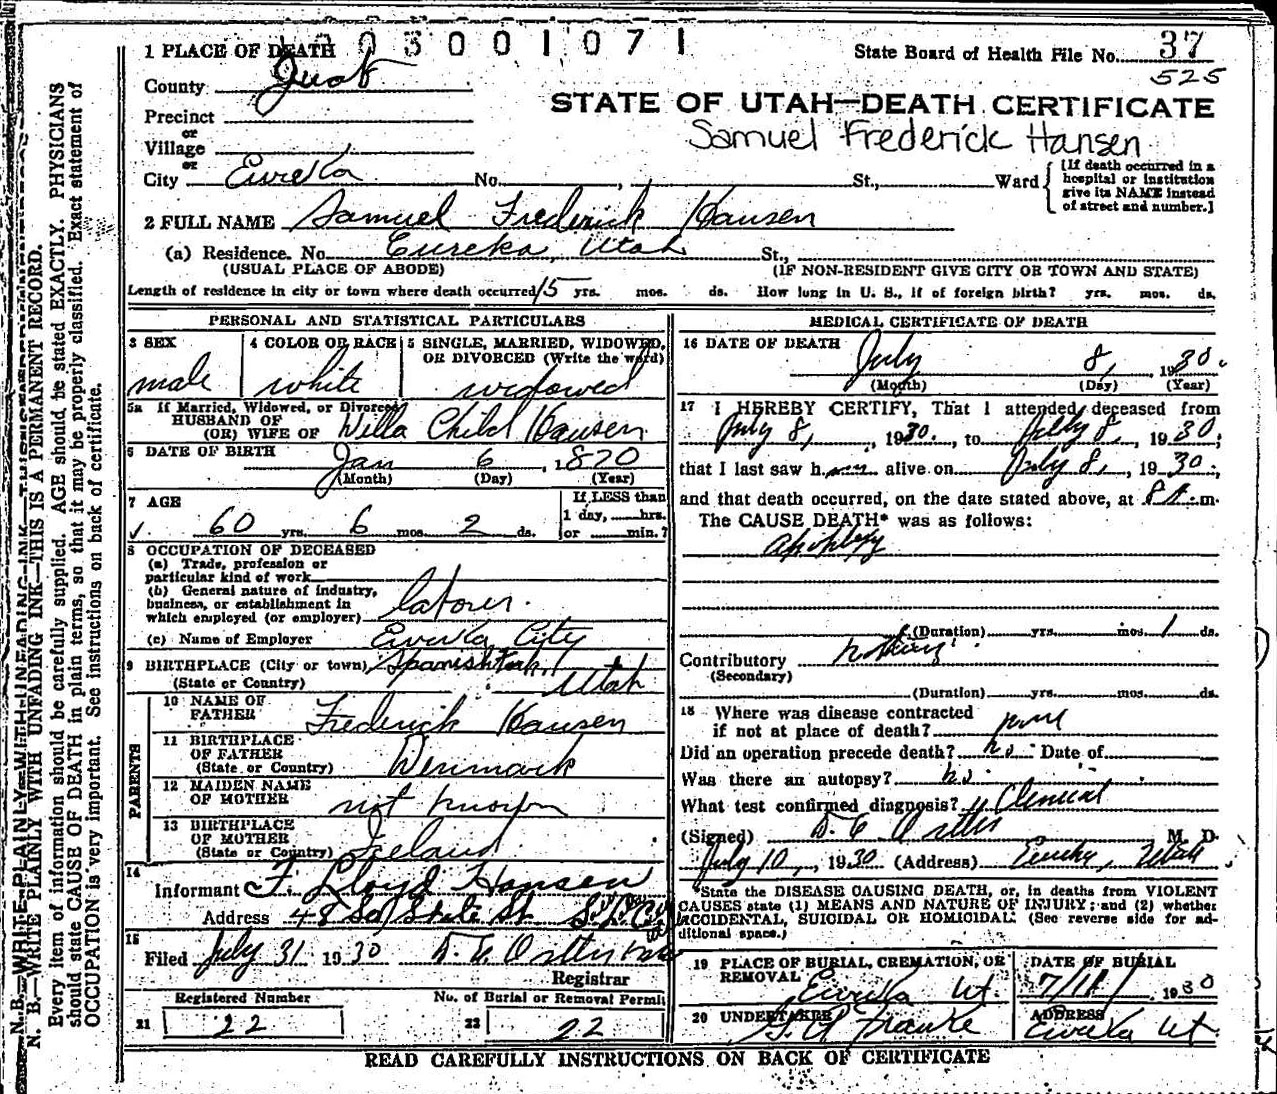 1 PLACE OF DEATH 003001071
State Board of Health File No. 37
525
County Juab
STATE OF UTAH—DEATH CERTIFICATE
Precinct
or
Village
Samuel Frederick Hansen
or
City Eureka No. , St., Ward
[If death occurred in a
hospital or institution
give its NAME instead
of street and number.]
2 FULL NAME Samuel Frederick Hansen
(a) Residence. No. Eureka, Utah St.,
(USUAL PLACE OF ABODE) (IF NON-RESIDENT GIVE CITY OR TOWN AND STATE)
Length of residence in city or town where death occurred 15 yrs. mos. ds. How long in U. S., if of foreign birth? yrs. mos. ds.
PERSONAL AND STATISTICAL PARTICULARS
3 SEX 4 COLOR OR RACE 5 SINGLE, MARRIED, WIDOWED,
OR DIVORCED (Write the word)
male white widowed
5a If Married, Widowed, or Divorced
HUSBAND OF
(OR) WIFE OF Willa Child Hansen
6 DATE OF BIRTH Jan 6, 1870
(Month) (Day) (Year)
7 AGE If LESS than
1 day, hrs.
60 yrs. 6 mos. 2 ds. or min.?
8 OCCUPATION OF DECEASED
(a) Trade, profession or
particular kind of work
(b) General nature of industry,
business, or establishment in
which employed (or employer) laborer.
(c) Name of Employer Eureka City
9 BIRTHPLACE (City or town) Spanish Fork,
(State or Country) Utah
PARENTS
10 NAME OF
FATHER Frederick Hansen
11 BIRTHPLACE
OF FATHER
(State or Country) Denmark
12 MAIDEN NAME
OF MOTHER not known
13 BIRTHPLACE
OF MOTHER
(State or Country) Iceland
14
Informant F. Lloyd Hansen
Address 48 So State St. S.L. City
15
Filed July 31 1930
Registrar
Registered Number No. of Burial or Removal Permit
21 22 22 22
MEDICAL CERTIFICATE OF DEATH
16 DATE OF DEATH
July 8, 1930.
(Month) (Day) (Year)
17 I HEREBY CERTIFY, That I attended deceased from
July 8, 1930., to July 8, 1930;
that I last saw h alive on July 8, 1930;
and that death occurred, on the date stated above, at 8 m.
The CAUSE DEATH* was as follows:
Apoplexy
(Duration) yrs. mos. 1 ds.
Contributory nothing.
(Secondary)
(Duration) yrs. mos. ds.
18 Where was disease contracted
if not at place of death?
Did an operation precede death? no Date of
Was there an autopsy? no.
What test confirmed diagnosis? Clinical
(Signed) M. D.
July 10, 1930 (Address) Eureka, Utah
*State the DISEASE CAUSING DEATH, or, in deaths from VIOLENT
CAUSES state (1) MEANS AND NATURE OF INJURY; and (2) whether
ACCIDENTAL, SUICIDAL OR HOMICIDAL. (See reverse side for ad-
ditional space.)
19 PLACE OF BURIAL, CREMATION, OR
REMOVAL DATE OF BURIAL
Eureka Ut. 7/11/ 1930
20 UNDERTAKER ADDRESS
G. A. Franke Eureka Ut.
READ CAREFULLY INSTRUCTIONS ON BACK OF CERTIFICATE
N. B.—WRITE PLAINLY WITH UNFADING INK—THIS IS A PERMANENT RECORD.
Every item of information should be carefully supplied. AGE should be stated EXACTLY. PHYSICIANS
should state CAUSE OF DEATH in plain terms, so that it may be properly classified. Exact statement of
OCCUPATION is very important. See instructions on back of certificate.